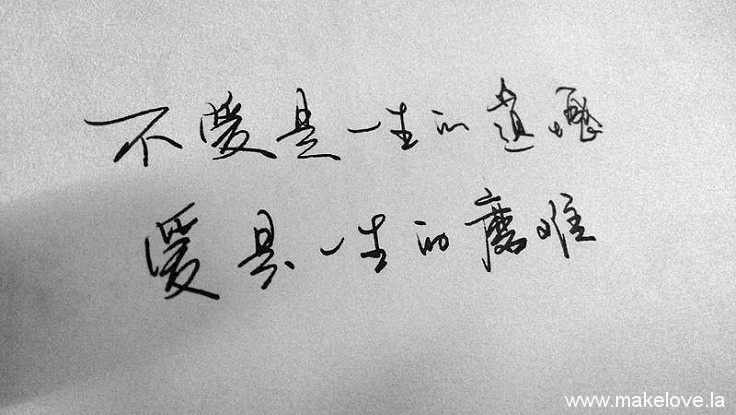 不愛是一生的遺憾
愛是一生的磨难
www.makelove.la